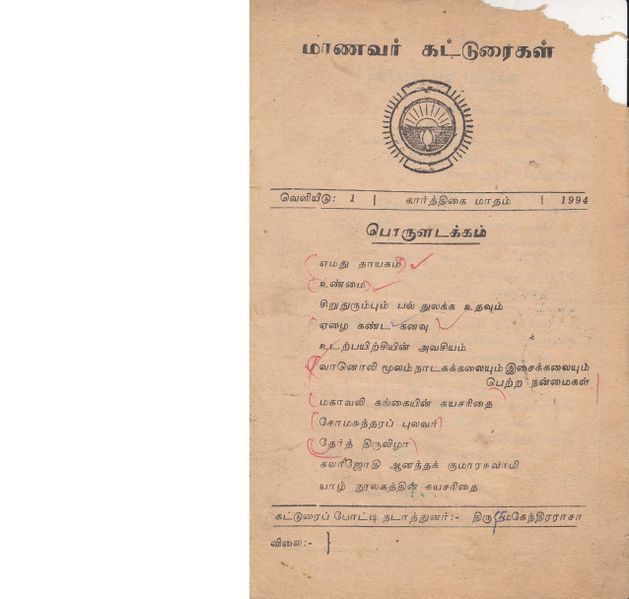 மாணவர் கட்டுரைகள்
வெளியீடு: 1 | கார்த்திகை மாதம் | 1994
பொருளடக்கம்
எமது தாயகம்
உண்மை
சிறுதுரும்பும் பல் துலக்க உதவும்
ஏழை கண்ட கனவு
உடற்பயிற்சியின் அவசியம்
வானொலி மூலம் நாடகக்கலையும் இசைக்கலையும்
பெற்ற நன்மைகள்
மகாவலி கங்கையின் சுயசரிதை
சோமசுந்தரப் புலவர்
தேர்த் திருவிழா
கலாஜோதி ஆனந்தக் குமாரசுவாமி
யாழ் நூலகத்தின் சுயசரிதை
கட்டுரைப் போட்டி நடாத்துனர்:- திரு மகேந்திரராசா
விலை:-